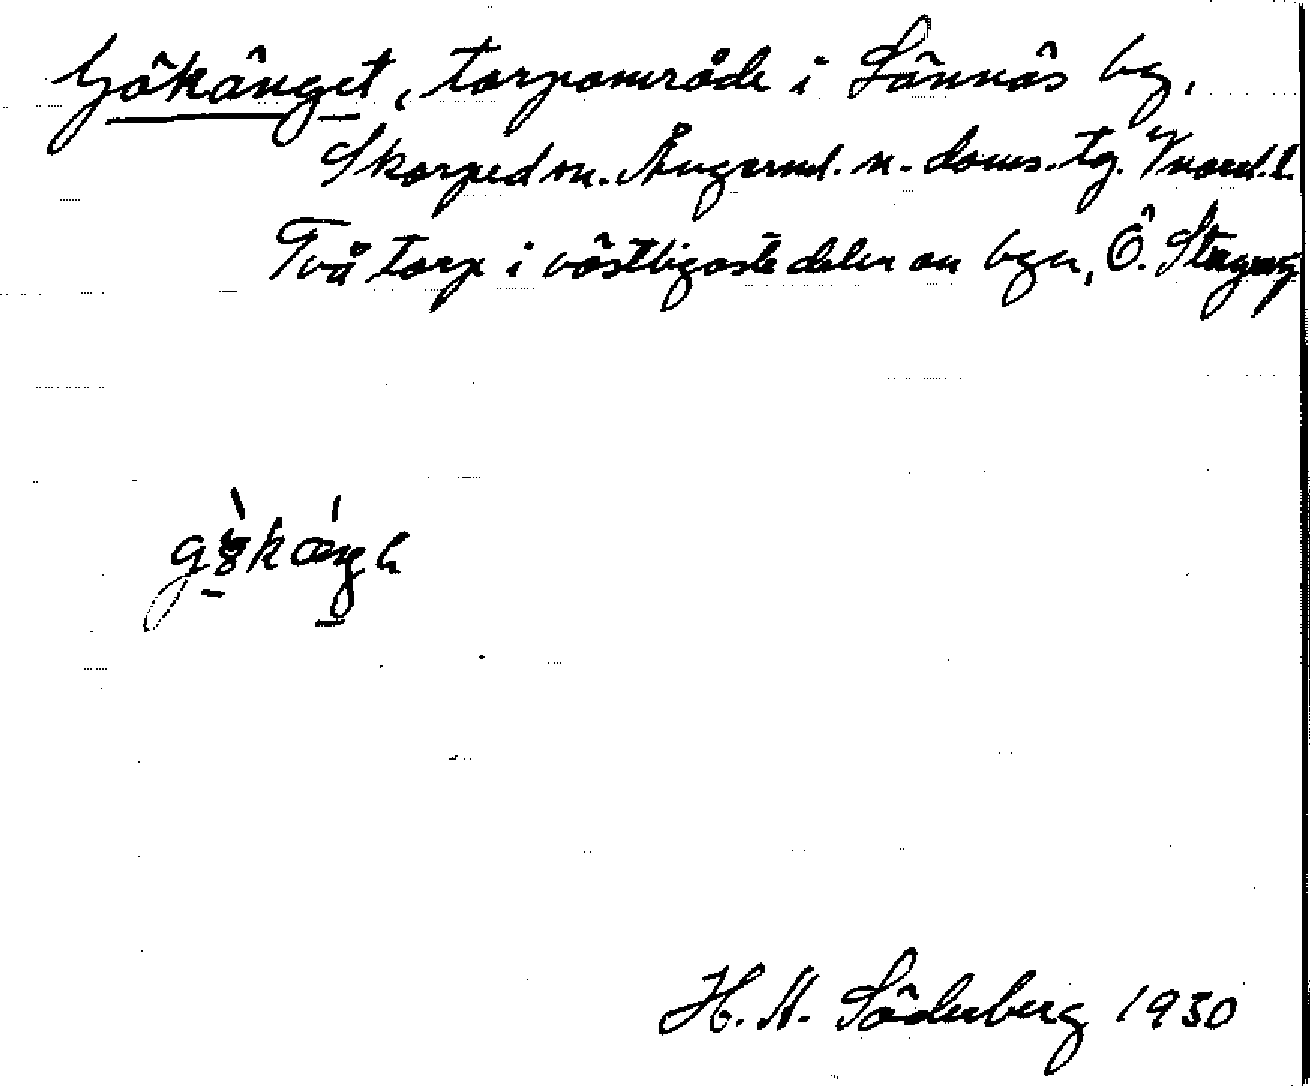 Gökänget, torpområde i Sännäs bg.
Skorped sn. Ångerml. n. doms. tg. Vnorrl. l.
Två torp i västligaste delen av byn, Ö.
H. N. Söderberg 1930